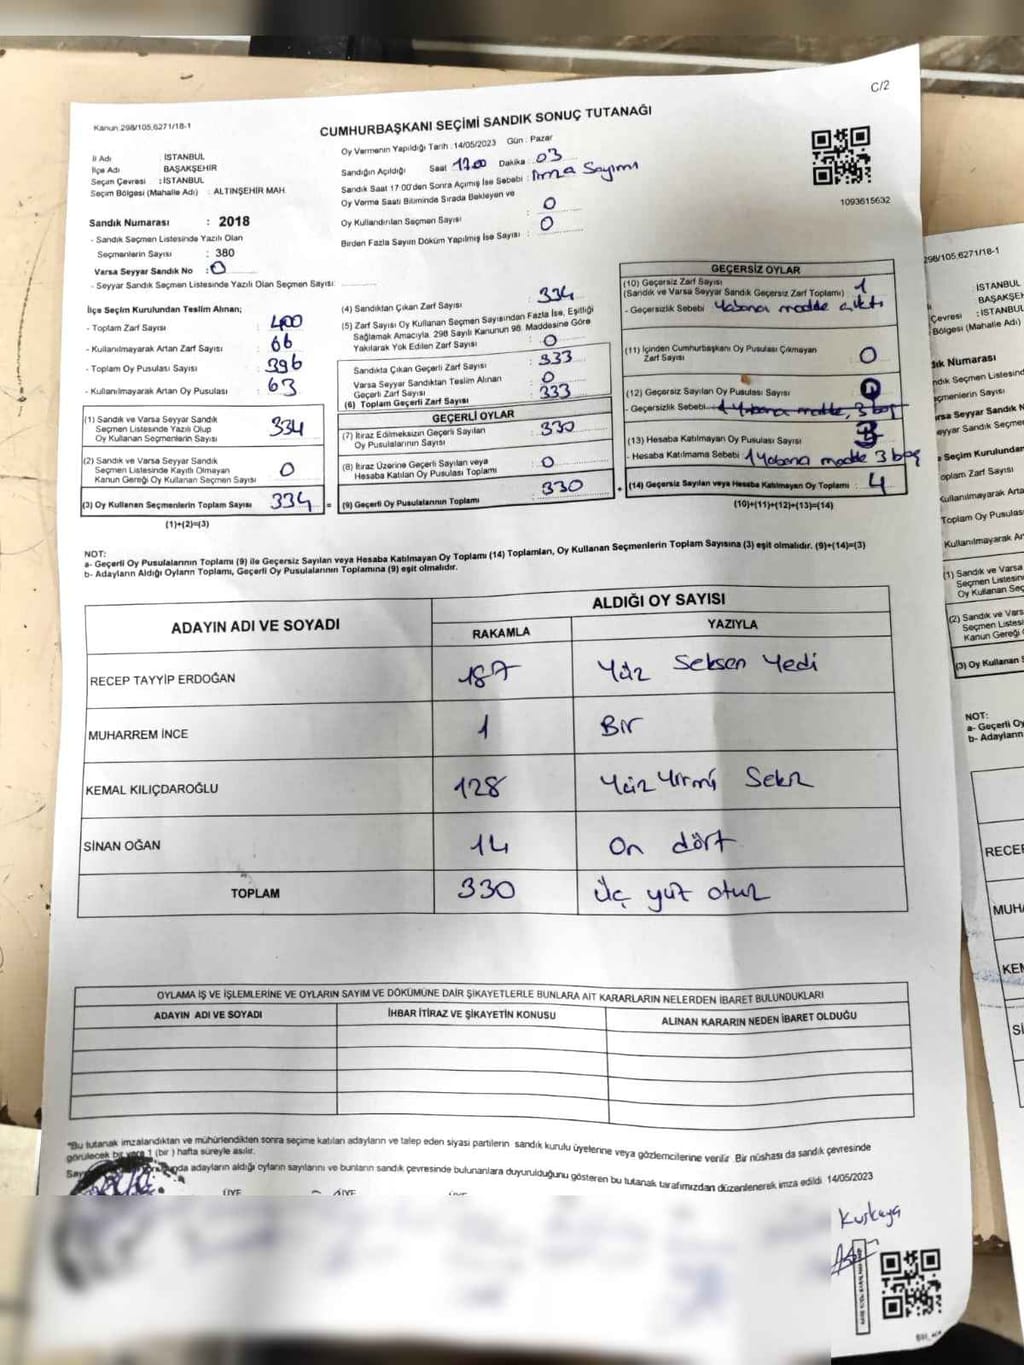 C/2
Kanun:298/105,6271/18-1
CUMHURBAŞKANI SEÇİMİ SANDIK SONUÇ TUTANAĞI
İl Adı : İSTANBUL
İlçe Adı : BAŞAKŞEHİR
Seçim Çevresi : İSTANBUL
Seçim Bölgesi (Mahalle Adı) : ALTINŞEHİR MAH.
Oy Vermenin Yapıldığı Tarih :14/05/2023 Gün : Pazar
Sandığın Açıldığı Saat 17.00 Dakika : 03
Sandık Saat 17:00'den Sonra Açımış İse Sebebi : İmza Sayımı
Oy Verme Saati Bitiminde Sırada Bekleyen ve
Oy Kullandırılan Seçmen Sayısı : 0
Birden Fazla Sayım Döküm Yapılmış İse Sayısı : 0
1093615632
Sandık Numarası : 2018
- Sandık Seçmen Listesinde Yazılı Olan
Seçmenlerin Sayısı : 380
Varsa Seyyar Sandık No : 0
- Seyyar Sandık Seçmen Listesinde Yazılı Olan Seçmen Sayısı :
İlçe Seçim Kurulundan Teslim Alınan;
- Toplam Zarf Sayısı : 400
- Kullanılmayarak Artan Zarf Sayısı : 66
- Toplam Oy Pusulası Sayısı : 396
- Kullanılmayarak Artan Oy Pusulası : 63
(1) Sandık ve Varsa Seyyar Sandık
Seçmen Listesinde Yazılı Olup
Oy Kullanan Seçmenlerin Sayısı : 334
(2) Sandık ve Varsa Seyyar Sandık
Seçmen Listesinde Kayıtlı Olmayan
Kanun Gereği Oy Kullanan Seçmen Sayısı : 0
(3) Oy Kullanan Seçmenlerin Toplam Sayısı : 334
(1)+(2)=(3)
(4) Sandıktan Çıkan Zarf Sayısı : 334
(5) Zarf Sayısı Oy Kullanan Seçmen Sayısından Fazla İse, Eşitliği
Sağlamak Amacıyla, 298 Sayılı Kanunun 98. Maddesine Göre
Yakılarak Yok Edilen Zarf Sayısı : 0
Sandıkta Çıkan Geçerli Zarf Sayısı : 333
Varsa Seyyar Sandıktan Teslim Alınan
Geçerli Zarf Sayısı : 0
(6) Toplam Geçerli Zarf Sayısı : 333
GEÇERLİ OYLAR
(7) İtiraz Edilmeksizin Geçerli Sayılan
Oy Pusulalarının Sayısı : 330
(8) İtiraz Üzerine Geçerli Sayılan veya
Hesaba Katılan Oy Pusulası Toplamı : 0
(9) Geçerli Oy Pusulalarının Toplamı : 330
GEÇERSİZ OYLAR
(10) Geçersiz Zarf Sayısı
(Sandık ve Varsa Seyyar Sandık Geçersiz Zarf Toplamı) : 1
- Geçersizlik Sebebi : Yabancı madde çıktı
(11) İçinden Cumhurbaşkanı Oy Pusulası Çıkmayan
Zarf Sayısı : 0
(12) Geçersiz Sayılan Oy Pusulası Sayısı :
- Geçersizlik Sebebi : 1 Yabancı madde, 3 boş
(13) Hesaba Katılmayan Oy Pusulası Sayısı : 3
- Hesaba Katılmama Sebebi : 1 Yabancı madde 3 boş
(14) Geçersiz Sayılan veya Hesaba Katılmayan Oy Toplamı : 4
(10)+(11)+(12)+(13)=(14)
NOT:
a- Geçerli Oy Pusulalarının Toplamı (9) ile Geçersiz Sayılan veya Hesaba Katılmayan Oy Toplamı (14) Toplamları, Oy Kullanan Seçmenlerin Toplam Sayısına (3) eşit olmalıdır. (9)+(14)=(3)
b- Adayların Aldığı Oyların Toplamı, Geçerli Oy Pusulalarının Toplamına (9) eşit olmalıdır.
ADAYIN ADI VE SOYADI ALDIĞI OY SAYISI
RAKAMLA YAZIYLA
RECEP TAYYİP ERDOĞAN 187 Yüz Seksen Yedi
MUHARREM İNCE 1 Bir
KEMAL KILIÇDAROĞLU 128 Yüz Yirmi Sekiz
SİNAN OĞAN 14 On dört
TOPLAM 330 Üç yüz otuz
OYLAMA İŞ VE İŞLEMLERİNE VE OYLARIN SAYIM VE DÖKÜMÜNE DAİR ŞİKAYETLERLE BUNLARA AİT KARARLARIN NELERDEN İBARET BULUNDUKLARI
ADAYIN ADI VE SOYADI İHBAR İTİRAZ VE ŞİKAYETİN KONUSU ALINAN KARARIN NEDEN İBARET OLDUĞU
"Bu tutanak imzalandıktan ve mühürlendikten sonra seçime katılan adayların ve talep eden siyasi partilerin sandık kurulu üyelerine veya gözlemcilerine verilir. Bir nüshası da sandık çevresinde
görülecek bir yere 1 (bir) hafta süreyle asılır.
adayların aldığı oyların sayılarını ve bunların sandık çevresinde bulunanlara duyurulduğunu gösteren bu tutanak tarafımızdan düzenlenerek imza edildi. 14/05/2023
ÜYE ÜYE ÜYE
Kuşkaya
298/105,6271/18-1
: İSTANBUL
: BAŞAKŞE
Çevresi : İSTANBUL
Bölgesi (Mahalle Adı)